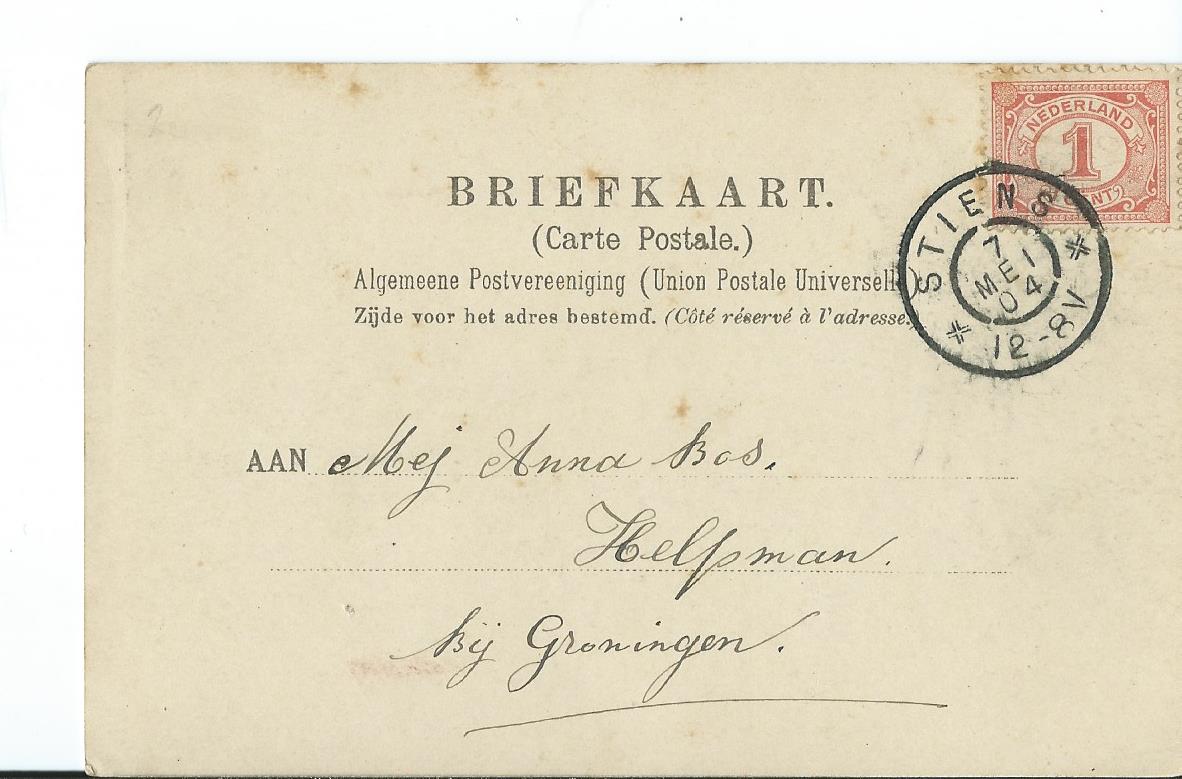 2
NEDERLAND
1
CENT
BRIEFKAART.
(Carte Postale.)
Algemeene Postvereeniging (Union Postale Universelle)
Zijde voor het adres bestemd. (Côté réservé à l'adresse.)
STIENS
7
MEI
04
12-8V
AAN Mej Anna Bos.
Helpman.
bij Groningen.